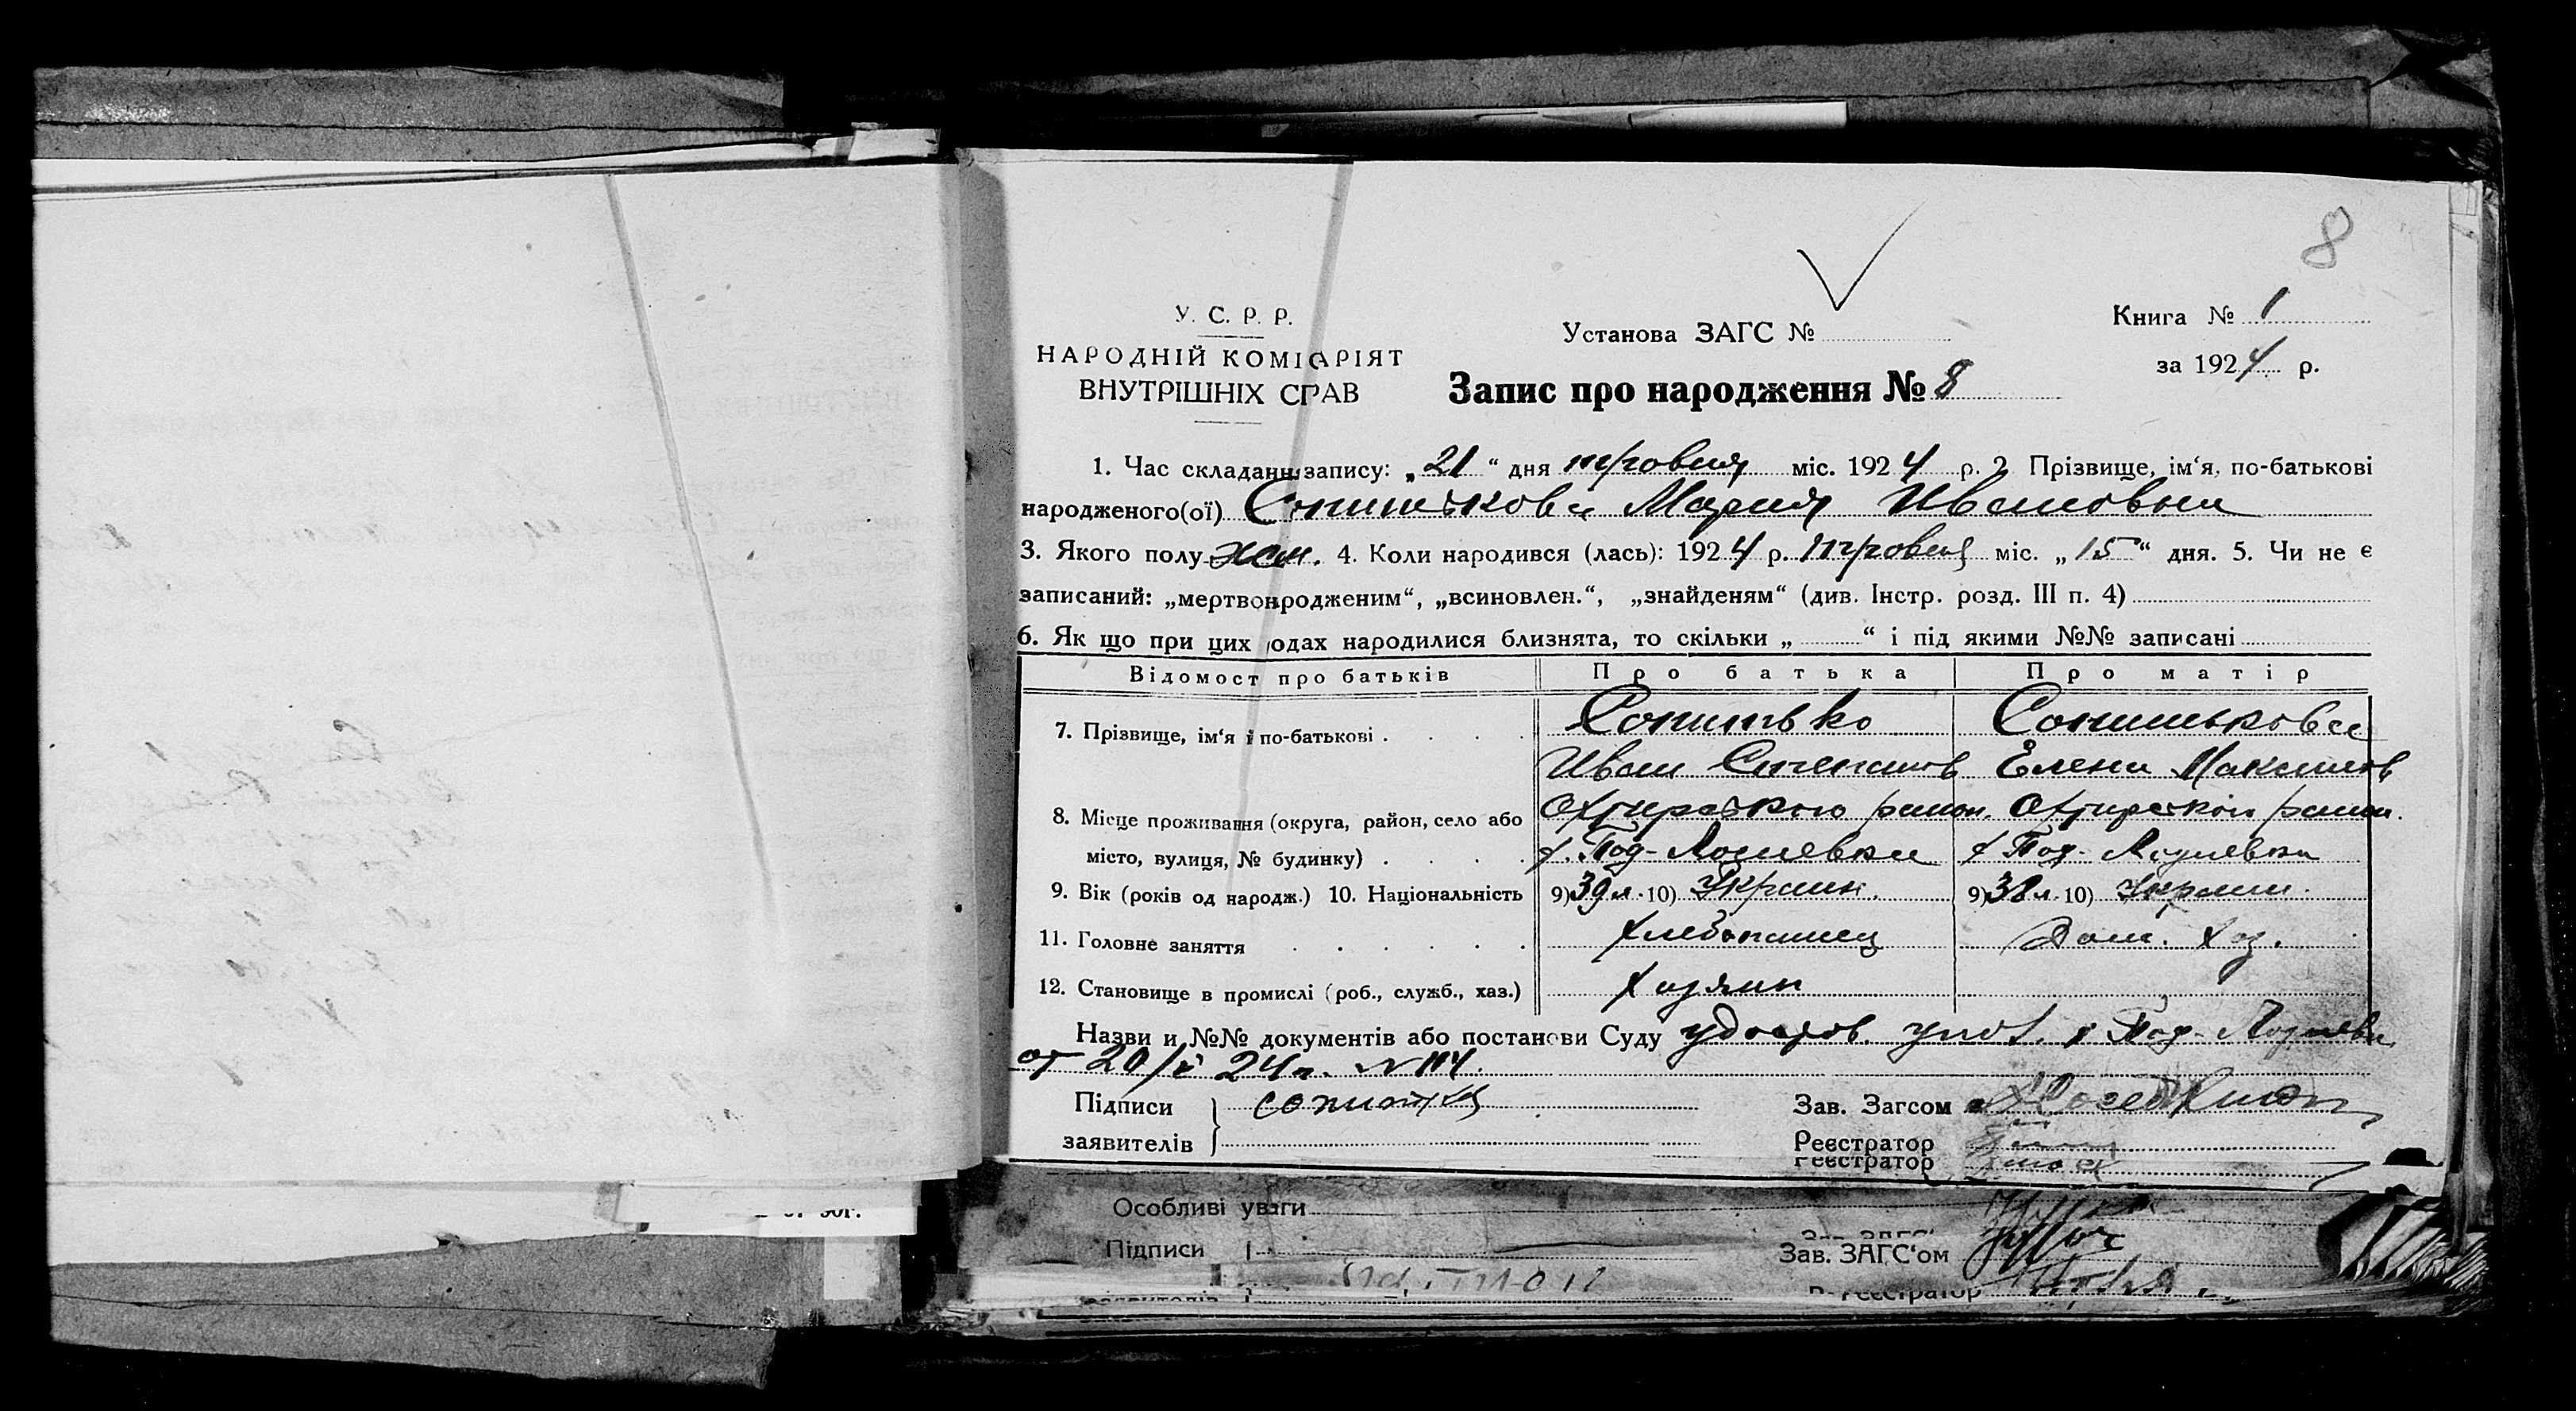 8
У. С. Р. Р.
НАРОДНІЙ КОМІСАРІЯТ
ВНУТРІШНІХ СПРАВ
Установа ЗАГС №
Книга № 1
за 1924 р.
Запис про народження № 8
1. Час складання запису: „21“ дня травня міс. 1924 р. 2. Прізвище, ім‘я, по-батькові
народженого(ої) Мария Ивановна
3. Якого полу жен. 4. Коли народився (лась): 1924 р. травня міс. „15“ дня. 5. Чи не є
записаний: „мертвонародженим“, „всиновлен.“, „знайденям“ (див. Інстр. розд. III п. 4)
6. Як що при цих родах народилися близнята, то скільки „ “ і під якими №№ записані
Відомості про батьків Про батька Про матір
7. Прізвище, ім‘я і по-батькові
Иван Степанов Елена Максимов
8. Місце проживання (округа, район, село або Охтирского район. Охтирского район.
місто, вулиця, № будинку) х. Под-Лозиевка х Под-Лозиевка
9. Вік (років од народж.) 10. Національність 9) 39 л. 10) Украин. 9) 38 л. 10) Украин.
11. Головне заняття Хлебопашец Дом. Хоз.
12. Становище в промислі (роб., служб., хаз.) Хозяин
Назви и №№ документів або постанови Суду удостов. упол. х Под-Лозиевки
от 20/V 24 г. № 114.
Підписи
заявителів
Зав. Загсом
Реєстратор
Реєстратор
Особливі уваги
Підписи
Зав. ЗАГС‘ом
Реєстратор